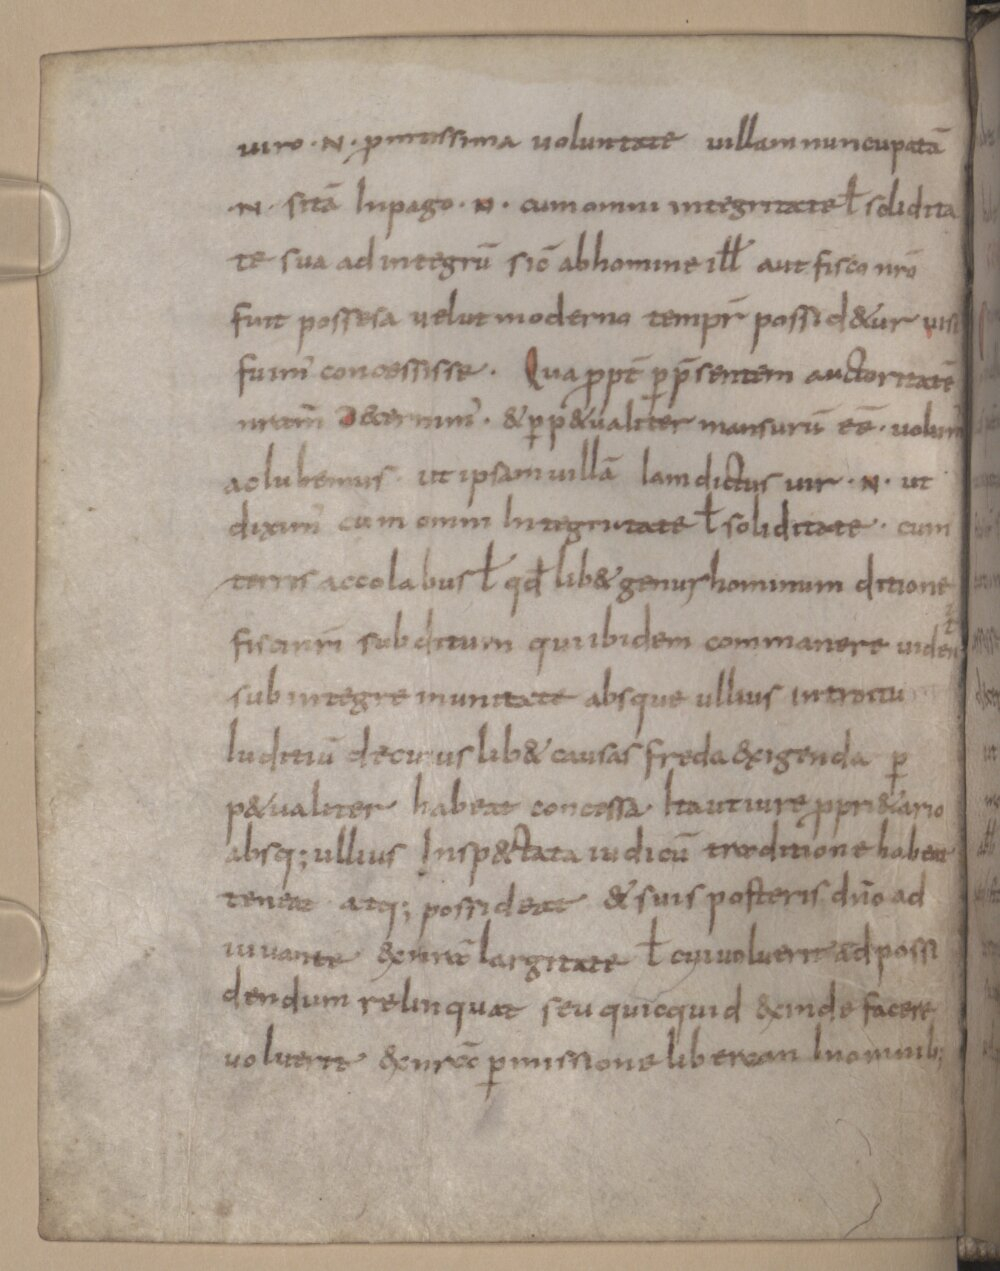 uiro · N · promtissima uoluntate uillam nuncupatā
· N · sitā In pago · N · cum omni integritate ł solidita
te sua ad integrū sic̄ ab homine ill̄ aut fisco nr̄o
fuit possesa uelut moderno tempr̄ possid&ur uisi
fuim' concessisse · Qua ꝓpt̄ ꝑ p̄sentem auctoritatē
nr̄am decernim' · & ꝑp&ualiter mansurū eē · uolum'
ac Iubemus · ut ipsam uillā Iam dictus uir · N · ut
dixim' cum omni Integritate ł soliditate · cum
terris accolabus ł qđ lib& genus hominum ditione
fisci nr̄i subditum qui ibidem commanere uident
sub integre inunitate absque ullius introitu
Iuditiū de cuius lib& causas freda exigenda ꝑ
p&ualiter habeat concessa · Ita ut iure ꝓpri&ario
absq; ullius Insp&tata iudicū traditione habeat
teneat atq; possideat & suis posteris dn̄o ad
iuuante &x nr̄a largitate ł cui uoluerit ad possi
dendum relinquat seu quicquid &xinde facere
uoluerit &x nr̄a ꝑmissione liberam In omnib;